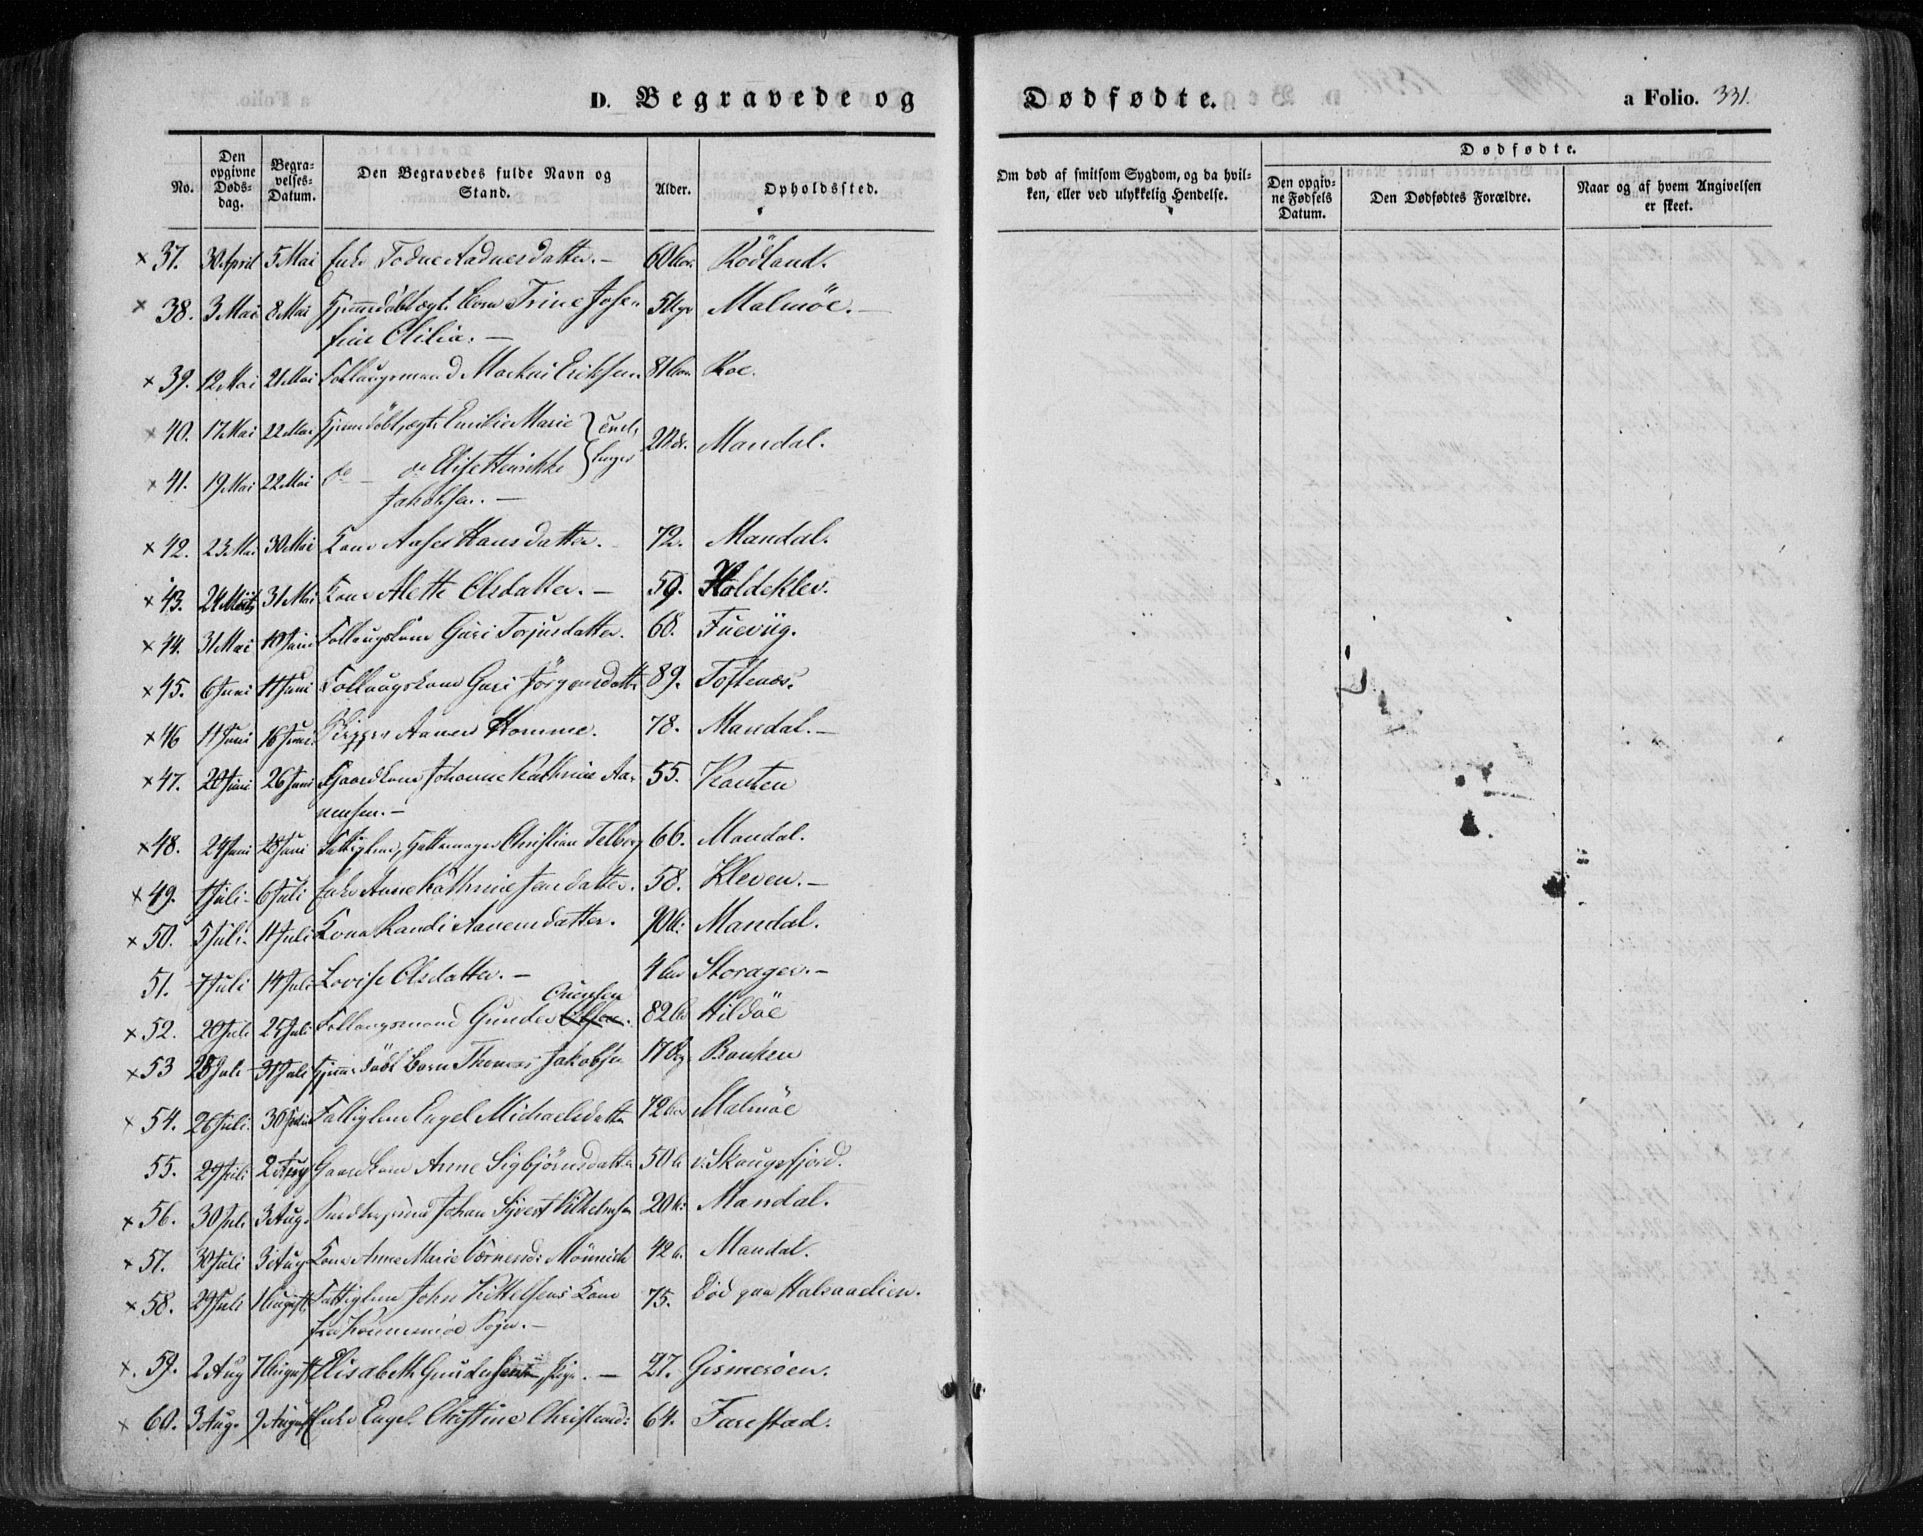 D. Begravede og Dødfødte.
a Folio. 331.
No.
Den opgivne Døds-dag.
Begra-velses-Datum.
Den Begravedes fulde Navn og Stand.
Alder.
Opholdssted.
Om død af smitsom Sygdom, og da hvil-ken, eller ved ulykkelig Hendelse.
Dødfødte.
Den opgiv-ne Fødsels Datum.
Den Dødfødtes Forældre.
Naar og af hvem Angivelsen er skeet.
× 37. 30 April 5 Mai Enke Todne Aadnesdatter. – 60 Rödland.
× 38. 3 Mai 8 Mai Hjemmedöbt ægt. Barn Trine Jose-
fine Olilia. – Malmöe. –
× 39. 12 Mai 21 Mai Follaugsmand Markus Eriksen 81 Roe.
× 40. 17 Mai 22 Mai Hjemmedöbt, ægt. Emilie Marie
× 41. 19 Mai 22 Mai do – do Elise Henrikke 20 Mandal.
Jakobsen. –
× 42. 23 Mai 30 Mai Kone Aase Hansdatter. 72. Mandal.
× 43. 24 31 Mai Kone Mette Olsdatter. – 59. Holdeklev.
× 44. 31 Mai 10 Juni Follaugskone Guri Torjusdatter. 68. Fueviig.
× 45. 6 Juni 11 Juni Follaugskone Guri Jörgensdatt 89. Toftenæs.
× 46 11 Juni 16 Juni Skipper Aanen Homme. 78. Mandal. –
× 47. 20 Juni 26 Juni Gaardkone Johanne Kathrine Aa-
nensen. – 55. Ransten
× 48. 24 Juni 28 Juni Fattiglem, Hattemager Christian Telborg 66. Mandal.
× 49. 1 Juli 6 Juli Enke Anne Kathrine Jensdatter. 58. Kleven. –
× 50. 5 Juli 11 Juli Kone Randi Aanensdatter. 90 Mandal.
51. 7 Juli 14 Juli Lovise Olsdatter. – 4 Storager. –
Ouensen
× 52. 20 Juli 25 Juli Follaugsmand Gunder Olsen. 82 Hildöe
× 53 28 Juli 31 Juli Hjemmedöbt Barn Thomas Jakobsen 17 Banken
× 54. 26 Juli 30 Juli Fattiglem Engel Michaelsdatter 72 Malmöe
55. 29 Juli 2 Aug Gaardkone Anne Sigbjörnsdatter 50 v. Skaugsfjord.
× 56. 30 Juli 3 Aug. Johan Sijvert Vilhelmsen 20 Mandal.
× 57. 30 Juli 3 Aug Kone Anne Marie Mönnich 42 Mandal.
× 58. 29 Juli 1 August Fattiglem John Kittelsens Kone 75. Död paa Halsaadien.
fra Sogn. –
× 59. 2 Aug 7 August Elisabeth Gundersen Pige. – 27. Gismeröen.
× 60. 3 Aug. 9 August Enke Engel Christine Christensd: 64. Farestad.